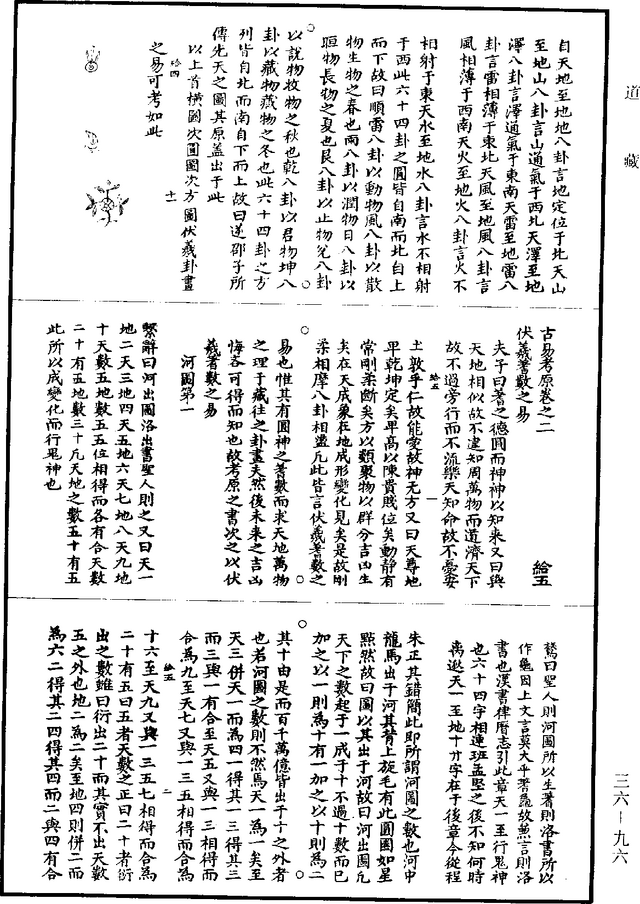 道藏
自天地至地地八卦言地定位于北天山
至地山八卦言山通氣于西北天澤至地
澤八卦言澤通氣于東南天雷至地雷八
卦言雷相薄于東北天風至地風八卦言
風相薄于西南天火至地火八卦言火不
相射于東天水至地水八卦言水不相射
于西此六十四卦之圓皆自南而北自上
而下故曰順雷八卦以動物風八卦以散
物生物之春也雨八卦以潤物日八卦以
晅物長物之夏也艮八卦以止物兌八卦
以說物收物之秋也乾八卦以君物坤八
卦以藏物藏物之冬也此六十四卦之方
列皆自北而南自下而上故曰逆邵子所
傳先天之圖其原蓋出于此
以上首橫圖次圓圖次方圖伏羲卦畫
給四
十一
之易可考如此
古易考原卷之二
給五
伏羲蓍數之易
夫子曰蓍之德圓而神神以知來又曰與
天地相似故不違知周萬物而道濟天下
故不過旁行而不流樂天知命故不憂安
給五
一
土敦乎仁故能愛故神无方又曰天尊地
卑乾坤定矣卑高以陳貴賤位矣動靜有
常剛柔斷矣方以類聚物以群分吉凶生
矣在天成象在地成形變化見矣是故剛
柔相摩八卦相盪凡此皆言伏羲蓍數之
易也惟其有圓神之蓍數而求天地萬物
之理于藏往之卦畫夫然後未來之吉凶
悔吝可得而知也故考原之書次之以伏
羲蓍數之易
河圖第一
繫辭曰河出圖洛出書聖人則之又曰天一
地二天三地四天五地六天七地八天九地
十天數五地數五五位相得而各有合天數
二十有五地數三十凡天地之數五十有五
此所以成變化而行鬼神也
鰲曰聖人則河圖所以生蓍則洛書所以
作龜因上文言莫大乎蓍龜故兼言則洛
書也漢書律曆志引此章天一至行鬼神
也六十四字相連班孟堅之後不知何時
离逖天一至地十廿字在于後章今從程
朱正其錯簡此即所謂河圖之數也河中
龍馬出于河其背上旋毛有此圓圖如星
點然故曰圖以其出于河故曰河出圖凡
天下之數起于一成于十不過十數而已
加之以一則為十有一加之以十則為二
其十由是而百千萬億皆出于十之外者
也若河圖之數則不然焉天一為一矣至
天三併天一而為四一得其一三得其三
而三與一有合至天五又與一三相得而
合為九至天七又與一三五相得而合為
給五
二
十六至天九又與一三五七相得而合為
二十有五曰五者天數之正曰二十者衍
出之數雖曰衍出二十而其實不出天數
五之外也地二為二矣至地四則併二而
為六二得其二四得其四而二與四有合
三六－九六